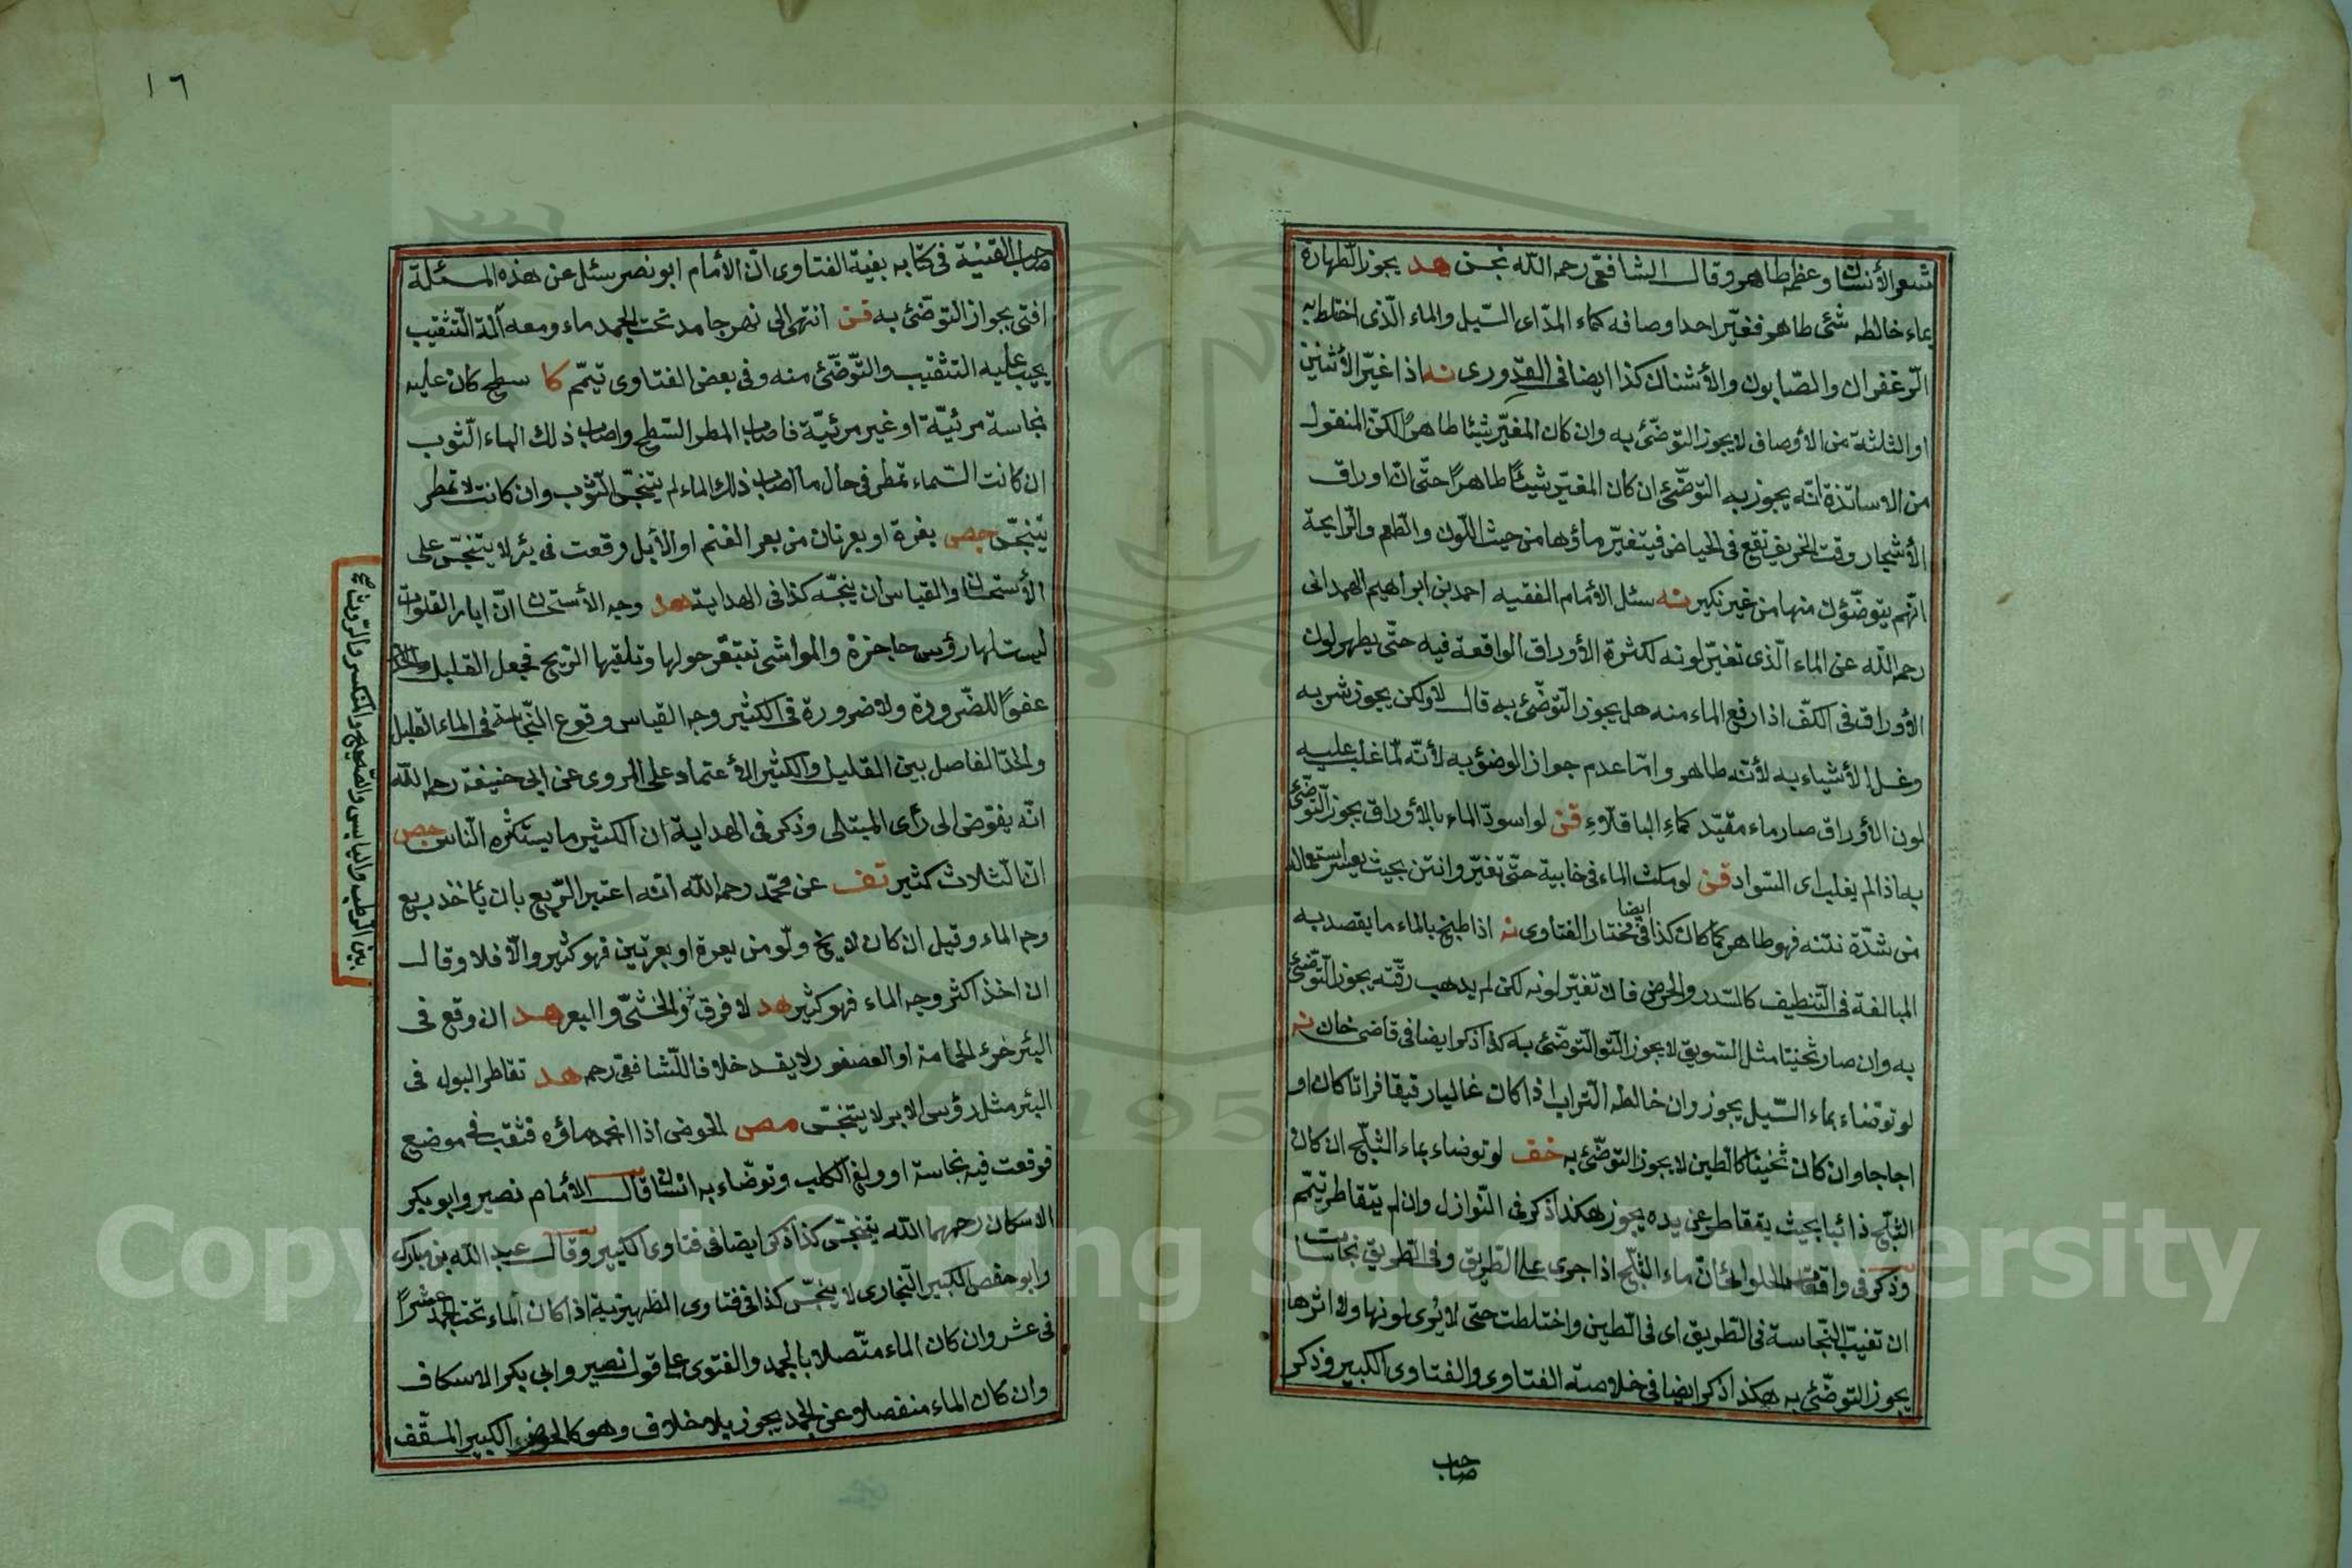 شعر الأنسان وعظمه طاهر وقال الشافعى رحمه الله نجس هد يجوز الطهارة
بماء خالطه شئ طاهر فغيّر احد اوصافه كماء المدّ اى السّيل والماء الّذى اختلط به
الزعفران والصّابون والأشنان كذا ايضا فى القدورى نه اذا غيّر الأثنين
او الثلثة من الأوصاف لا يجوز التوضّئ به وان كان المغيّر شيئا طاهرًا لكنّ المنقول
من الاساتذة انّه يجوز به التوضّئ ان كان المغيّر شيئًا طاهرًا حتّى انّ اوراق
الأشجار وقت الخريف تقع فى الحياض فيتغيّر ماؤها من حيث اللّون والطعم والرايحة
انّهم يتوضّؤن منها من غير نكير نه سئل الأمام الفقيه احمد بن ابراهيم الهمدانى
رحمه اللّه عن الماء الّذى تغيّر لونه لكثرة الأوراق الواقعة فيه حتّى يظهر لون
الأوراق فى الكفّ اذا رفع الماء منه هل يجوز التّوضّئ به قال لا ولكن يجوز شربه
وغسل الأشياء به لأنّه طاهر وامّا عدم جواز الوضؤ به لأنّه لمّا غلب عليه
لون الأوراق صار ماء مقيّد كماءِ الباقلّاءِ قن لو اسودّ الماء بالأوراق يجوز التّوضّئ
به اذا لم يغلب اى السّواد قن لو مكث الماء فى خابية حتّى تغيّر وانتن بحيث يعسر استعماله
من شدّة نتنه فهو طاهر كما كان كذا فى ايضا مختار الفتاوى نه اذا طبخ بالماء ما يقصد به
المبالغة فى التّنظيف كالسّدر والحرض فان تغيّر لونه لكن لم يذهب رقّته يجوز التّوضّئ
به وان صار ثخينا مثل السّويق لا يجوز التّو التّوضّئ به كذا ذكر ايضا فى قاضى خان نه
لو توضّاء بماء السّيل يجوز وان خالطه التراب اذا كان غالبا رقيقا فراتا كان او
اجاجا وان كان ثخينا كالطين لا يجوز التوضّئ به خف لو توضاء بماء الثلّج ان كان
الثلّج ذائبا بحيث يتقاطر عن يده يجوز هكذا ذكر فى النّوازل وان لم يتقاطر تيمّم
وذكر فى واقعات الحلوانى انّ ماء الثلّج اذا جرى على الطّريق وفى الطّريق نجاسات
ان تغيّب النّجاسة فى الطّريق اى فى الطّين واختلطت حتى لا يُرى لونها ولا اثرها
يجوز التوضّئ به هكذا ذكر ايضا فى خلاصة الفتاوى والفتاوى الكبير وذكر
صاحب
١٦
صاحب القنية فى كتابه بغية الفتاوى انّ الأمام ابو نصر سئل عن هذه المسئلة
افتى بجواز التوضّئ به قن انتهى الى نهر جامد تحت الجمد ماء ومعه آلة التّثقيب
يجب عليه التثقيب والتّوضّئ منه وفى بعض الفتاوى تيمّم كا سطح كان عليه
نجاسة مرئيّة او غير مرئيّة فاصاب المطر السّطح واصاب ذلك الماء الثّوب
ان كانت السّماء تمطر فى حال ما اصاب ذلك الماء لم يتنجّس الثّوب وان كانت لا تمطر
يتنجّس جص بعرة او بعرتان من بعر الغنم او الأبل وقعت فى بئر لا يتنجّس على
الأستحسان والقياس ان ينجّسه كذا فى الهداية هد وجه الأستحسان انّ ابار الفلوات
ليست لها رؤس حاجزة والمواشى تبتعر حولها وتلقيها الرّيح فجعل القليل
عفوًا للضّرورة ولا ضرورة فى الكثير وجه القياس وقوع النّجاسة فى الماء القليل
والحدّ الفاصل بين القليل والكثير الأعتماد على المروى عن ابى حنيفة رحمه اللّه
انّه يفوّض الى رأى المبتلى وذكر فى الهداية ان الكثير ما يستكثره النّاس جص
انّ الثّلاث كثير تف عن محمّد رحمه اللّه انّه اعتبر الرّبع بان يأخذ ربع
وجه الماء وقيل ان كان لا يخ دلو من بعرة او بعرتين فهو كثير والّا فلا وقال
ان اخذ اكثر وجه الماء فهو كثير هد لا فرق بين الروث والخثى والبعر هد ان وقع فى
البئر خرء الحمامة او العصفور لا يفسد خلافا للشّافعى رحمه هد تقاطر البول فى
البئر مثل رؤس الابر لا يتنجّس مص الحوض اذا انجمد ماؤه فثقب فى موضع
فوقعت فيه نجاسة او ولغ الكلب وتوضّاء به انسان قال الأمام نصير وابو بكر
الاسكاف رحمهما اللّه يتنجّس كذا ذكر ايضا فى فتاوى الكبير وقال عبد اللّه بن مبارك
وابو حفص الكبير البخارى لا ينجّس كذا فى فتاوى الظهيريّة اذا كان الماء تحت الجمد عشرًا
فى عشر وان كان الماء متّصلا بالجمد والفتوى على قول نصير وابى بكر الاسكاف
وان كان الماء منفصلا عن الجمد يجوز بلا خلاف وهو كالحوض الكبير المسقّف
بين الرّطب واليابس والصّحيح والمنكسر والرّوث صح
Copyright © King Saud University
1957